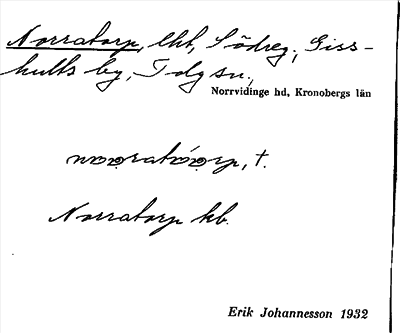 Norratorp, lht, Södreg., Giss-
hults by, Tolg sn.,
Norrvidinge hd, Kronobergs län
Norratorp kb.
Erik Johannesson 1932